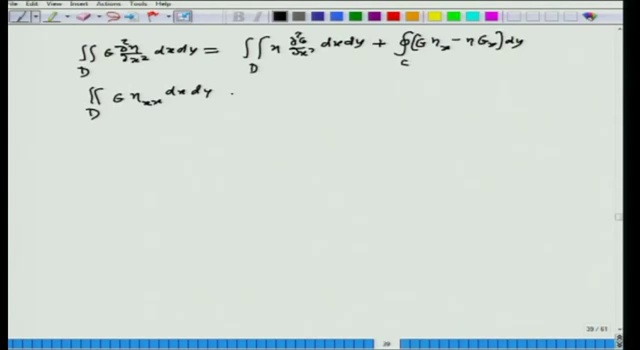 Edit View Insert Actions Tools Help
∬_D G ∂²η/∂x² dxdy = ∬_D η ∂²G/∂x² dxdy + ∮_C (G η_x − η G_x) dy
∬_D G η_xx dxdy .
29 / 61
29